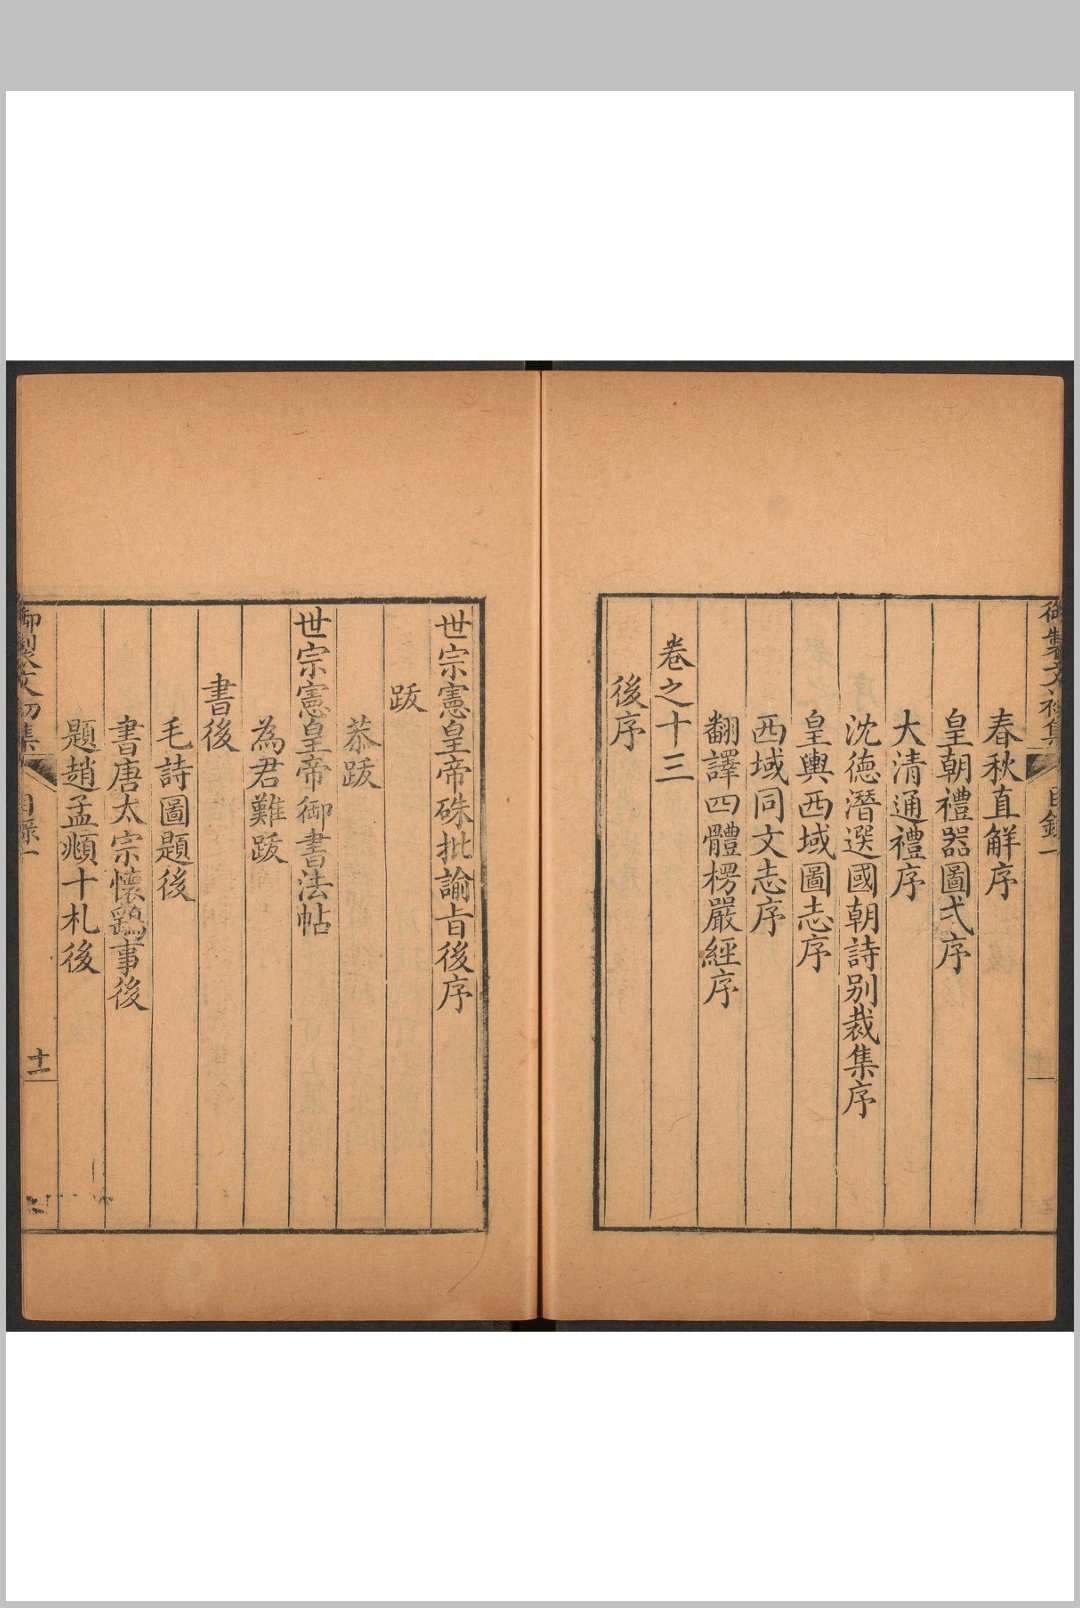 御製文初集
目錄一
春秋直解序
皇朝禮器圖式序
大清通禮序
沈德潛選國朝詩别裁集序
皇輿西域圖志序
西域同文志序
翻譯四體楞嚴經序
卷之十三
後序
世宗憲皇帝硃批諭旨後序
跋
恭跋
世宗憲皇帝御書法帖
為君難跋
書後
毛詩圖題後
書唐太宗懷鷂事後
題趙孟頫十札後
御製文初集
目錄一
十一